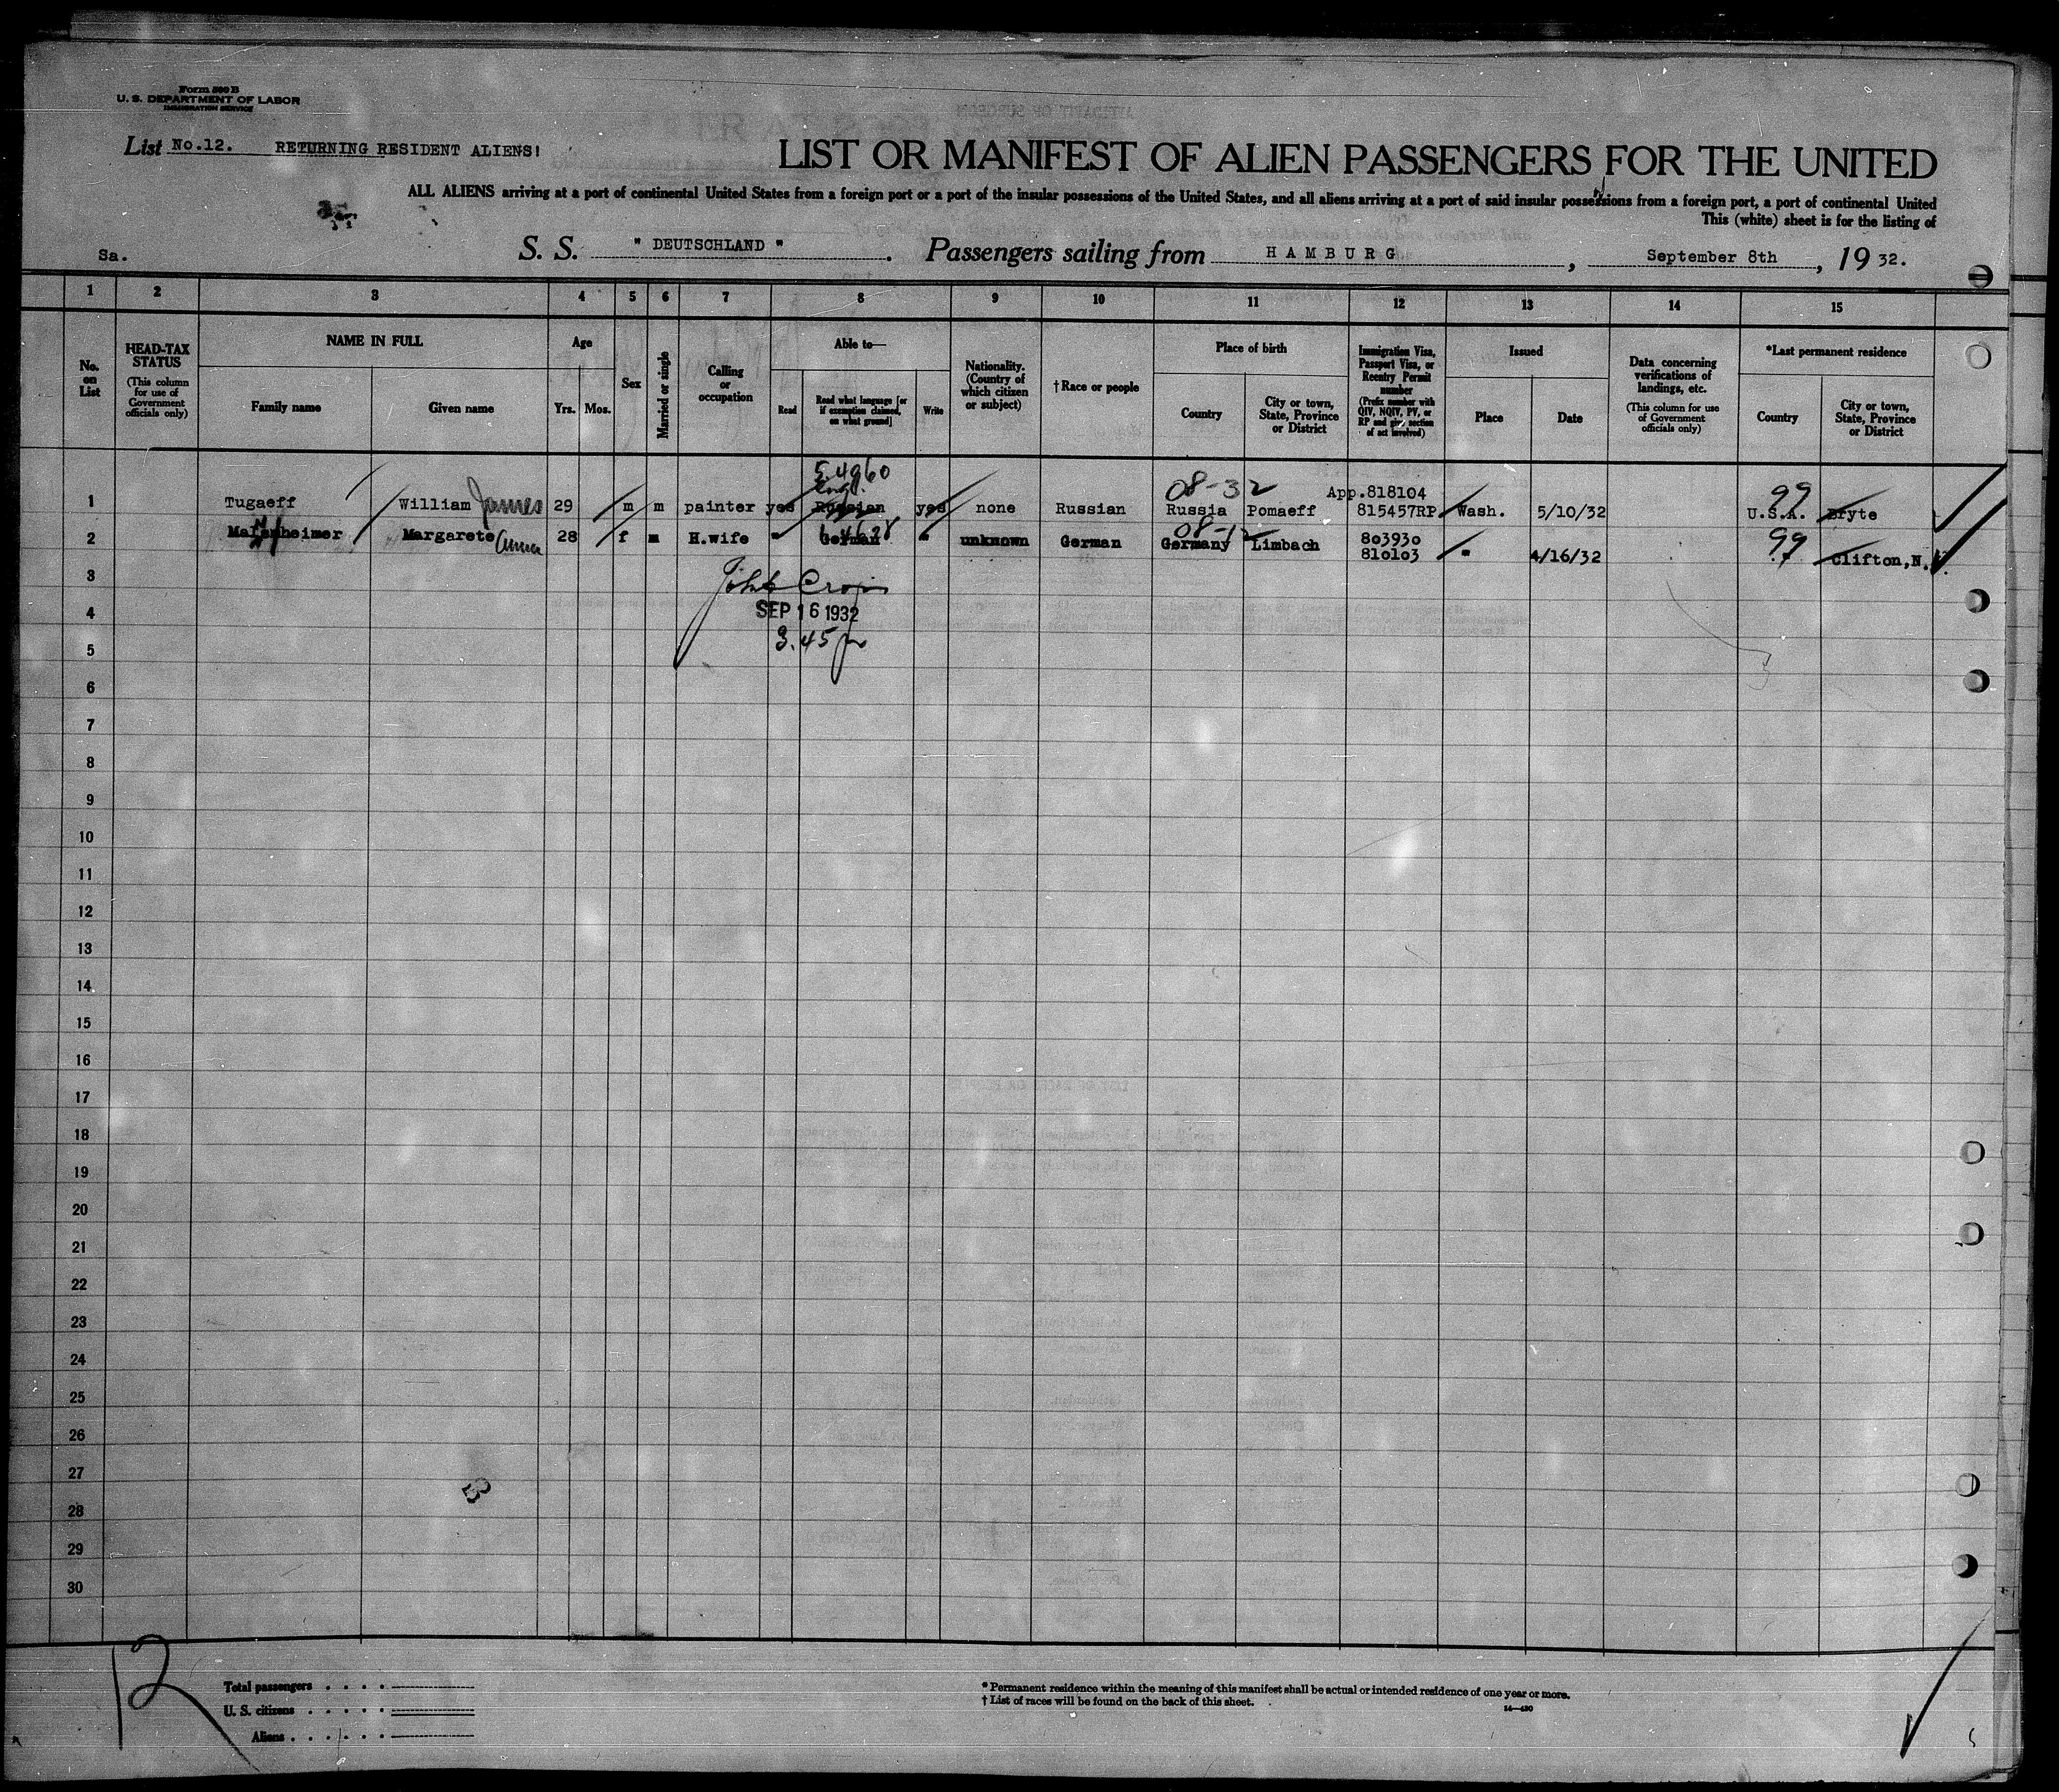 Form 500 B
U. S. DEPARTMENT OF LABOR
IMMIGRATION SERVICE
List No.12. RETURNING RESIDENT ALIENS!
LIST OR MANIFEST OF ALIEN PASSENGERS FOR THE UNITED
ALL ALIENS arriving at a port of continental United States from a foreign port or a port of the insular possessions of the United States, and all aliens arriving at a port of said insular possessions from a foreign port, a port of continental United
This (white) sheet is for the listing of
Sa. S. S. " DEUTSCHLAND " . Passengers sailing from HAMBURG , September 8th , 19 32.
1 2 3 4 5 6 7 8 9 10 11 12 13 14 15
No. on List
HEAD-TAX STATUS
(This column for use of Government officials only)
NAME IN FULL
Family name
Given name
Age
Yrs. Mos.
Sex
Married or single
Calling or occupation
Able to—
Read
Read what language [or if exemption claimed, on what ground]
Write
Nationality. (Country of which citizen or subject)
†Race or people
Place of birth
Country
City or town, State, Province or District
Immigration Visa, Passport Visa, or Reentry Permit number
(Prefix number with QIV, NQIV, PV, or RP and give section of act involved)
Issued
Place
Date
Data concerning verifications of landings, etc.
(This column for use of Government officials only)
*Last permanent residence
Country
City or town, State, Province or District
54960
Engl. 08-32 App.818104 99
1 Tugaeff William James 29 m m painter yes Russian yes none Russian Russia Pomaeff 815457RP Wash. 5/10/32 U.S.A. Bryte
08-12 803930 99
2 Mannheimer Margarete Anna 28 f m H.wife " German " unknown German Germany Limbach 810103 " 4/16/32 Clifton,N.
3
John
4 SEP 16 1932
5 3.45 pm
6
7
8
9
10
11
12
13
14
15
16
17
18
19
20
21
22
23
24
25
26
27
28
29
30
12
Total passengers
U. S. citizens
Aliens
* Permanent residence within the meaning of this manifest shall be actual or intended residence of one year or more.
† List of races will be found on the back of this sheet.
14—430